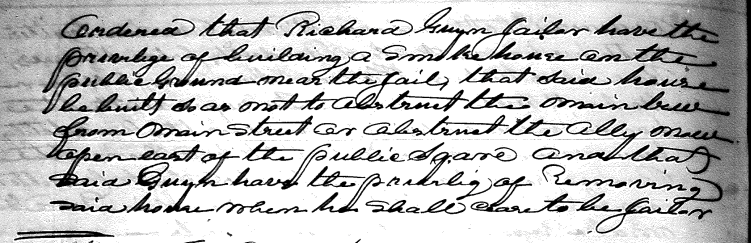 Ordered that Richard Guyn Jailor have the
privilege of building a Smoke house on the
public Ground near the Jail, that said house
be built so as not to obstruct the main view
from Main Street or obstruct the Ally now
open east of the public Sqare And that
said Guyn have the privilig of Removing
said house when he shall cease to be Jailor